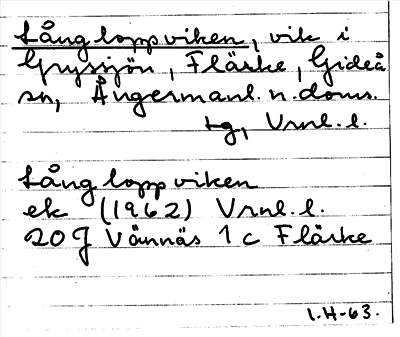 Långloppviken, vik i
Grysjön, Flärke, Gideå
sn, Ångermanl. n. doms.
tg, Vrnl. l.
Långloppviken
ek (1962) Vrnl. l.
20 J Vännäs 1 c Flärke
I.H-63.